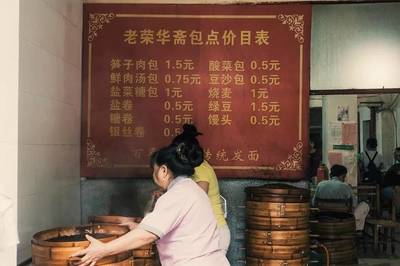 老荣华斋包点价目表
笋子肉包 1.5元 酸菜包 0.5元
鲜肉汤包 0.75元 豆沙包 0.5元
盐菜糖包 1元 烧麦 1元
盐卷 0.5元 绿豆 1.5元
糖卷 0.5元 馒头 0.5元
银丝卷 0.5元
百 传统发面